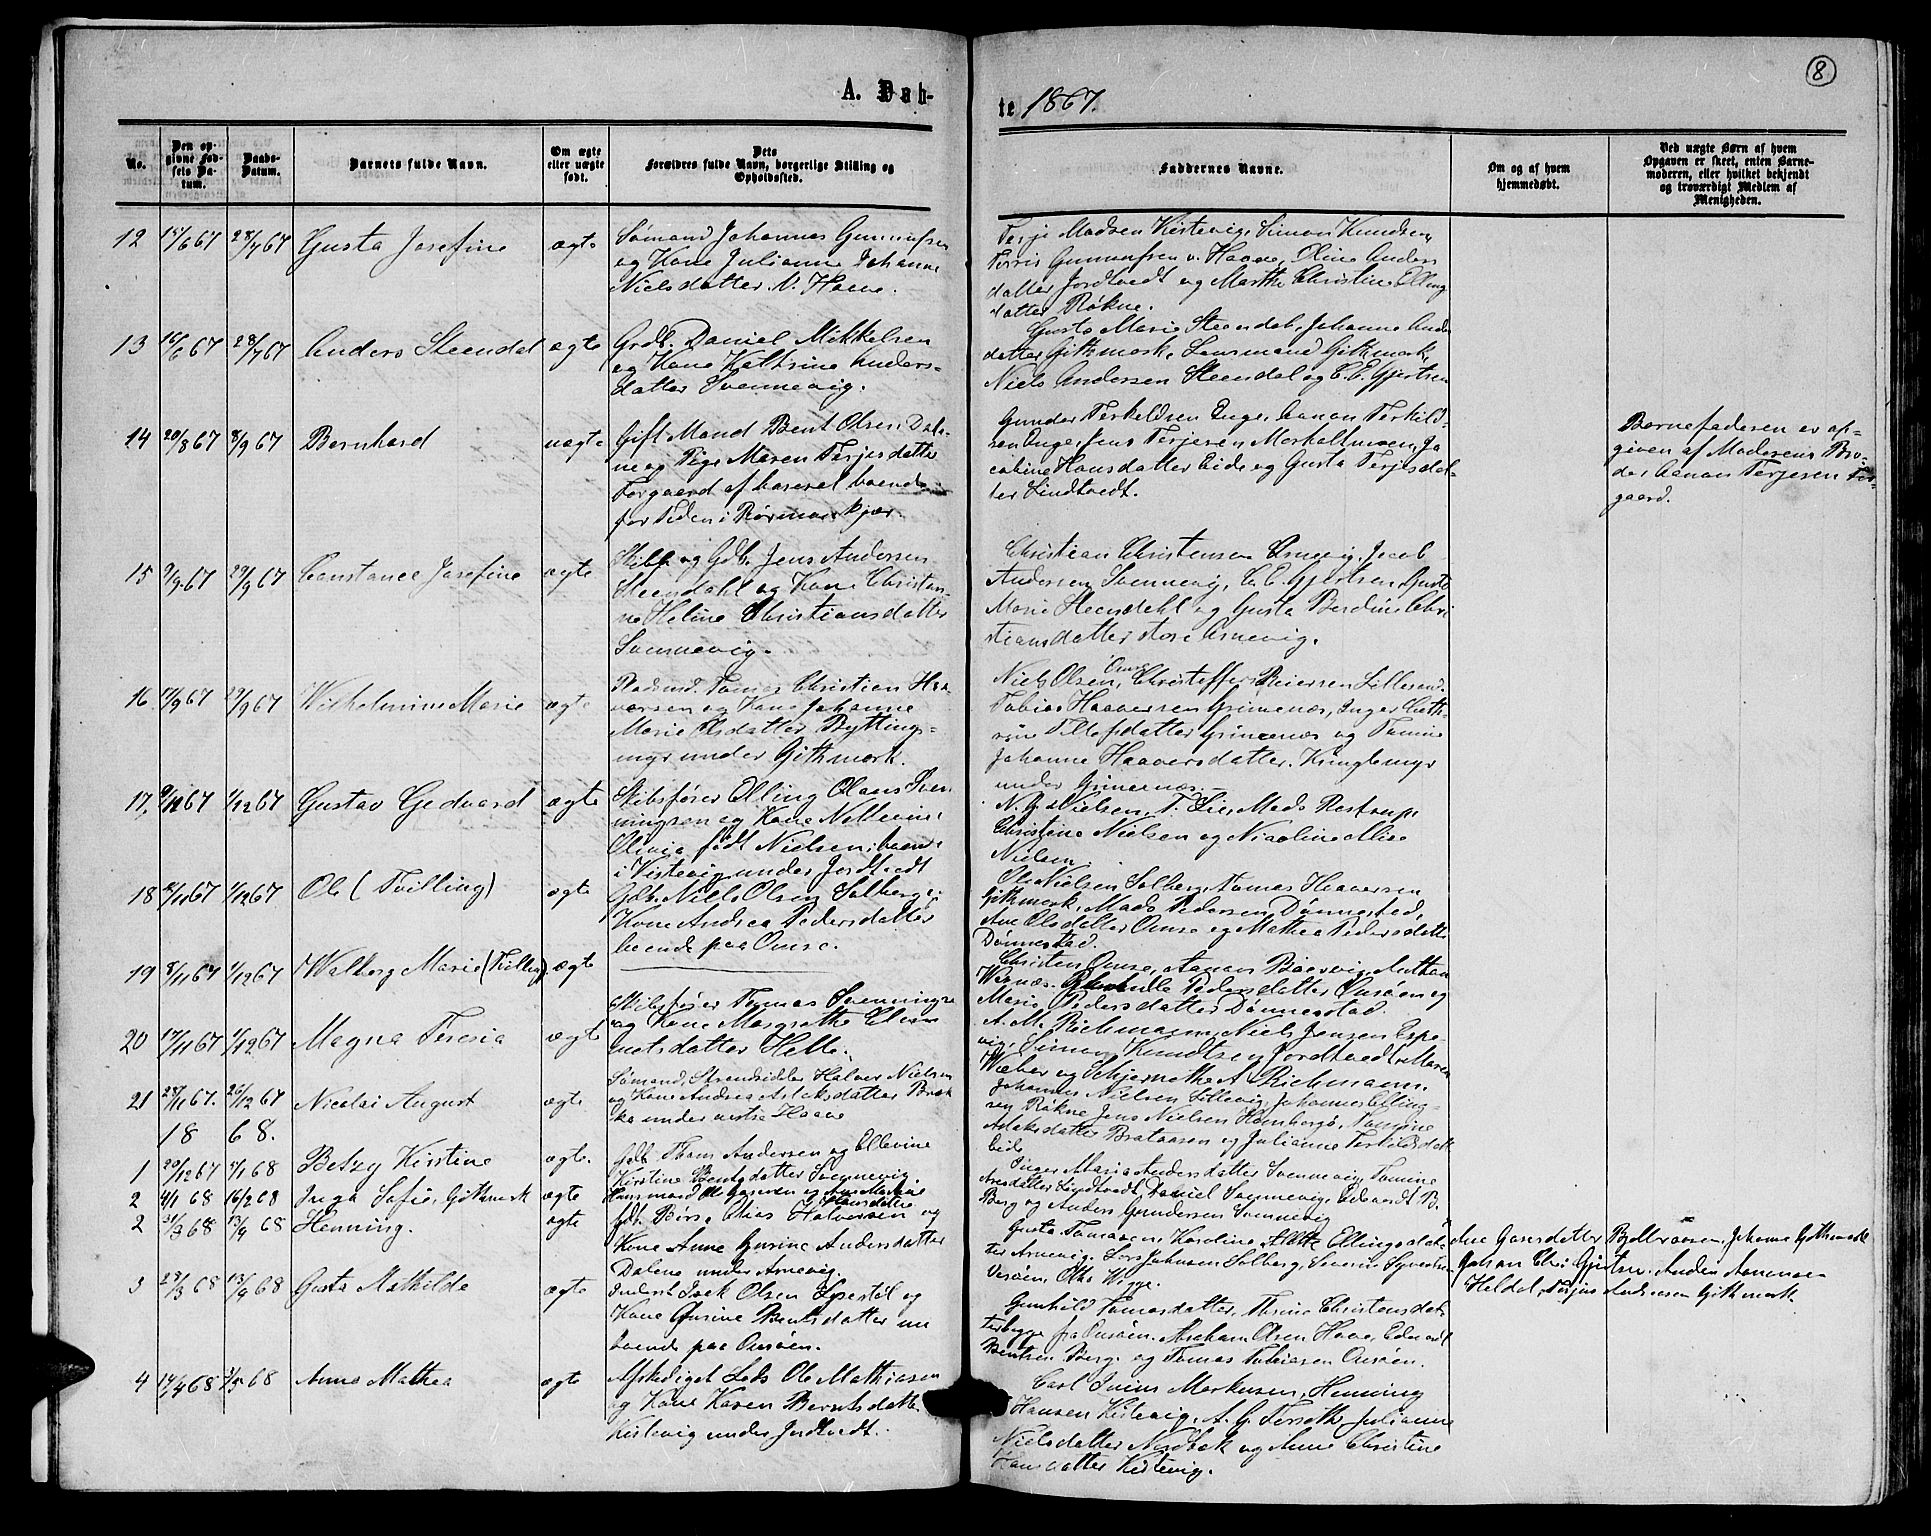 8
A. Døb-
te 1867.
No.
Den op-
givne Fød-
sels Da-
tum.
Daabs-
Datum.
Barnets fulde Navn.
Om ægte
eller uægte
født.
Dets
Forældres fulde Navn, borgerlige Stilling og
Opholdssted.
Faddernes Navne.
Om og af hvem
hjemmedøbt.
Ved uægte Børn af hvem
Opgaven er skeet, enten Barne-
moderen, eller hvilket bekjendt
og troværdigt Medlem af
Menigheden.
12 15/6 67 28/7 67 Gusta Josefine ægte
Sømand Johannes Gunnufsen
og Kone Julianne Johanne
Nielsdatter N. Haave.
Terje Madsen Kistevig, Simon Knudsen,
Terris Gunnufsen v. Haave, Oline Anders
datter Jordtvedt og Marthe Christine Elling
datter Røkne.
13 16/6 67 28/7 67 Anders Steendal ægte
Grdb. Daniel Mikkelsen
og Kone Kathrine Anders-
datter Svennevig.
Gusta Marie Steendal, Johanne Anders
datter Githmark, Lensmand Githmark,
Niels Andersen Steendal og C. E. Gjertsen
14 20/8 67 8/9 67 Bernhard uægte
Gift Mand Bent Olsen Dale-
ne og Pige Maren Terjesdatter
Torgaard af boende
for Tiden i Rørmoekjær.
Gunder Terkeldsen Enge, Aanon Terkild-
sen Enge, Jens Terjesen Morholtmoen, Ja
cobine Hansdatter Eide og Gusta Terjesdat-
ter Lindtvedt.
Barnefaderen er op-
given af Moderens Bro-
der Aanon Terjesen Tor-
gaard.
15 9/9 67 29/9 67 Constance Josefine ægte
Skibf. og Gdb. Jens Andersen
Steendahl og Kone Christian-
ne Heline Christiansdatter
Svennevig.
Christian Christensen Arnevig, Jacob
Andersen Svennevig, C. E. Gjertsen, Gusta
Marie Steendahl og Gusta Berdine Chri
stiansdatter store Arnevig.
16 17/9 67 29/9 67 Wilhelmine Marie ægte
Pladsmd. Tomas Christian Haa-
versen og Kone Johanne
Marie Olsdatter Bytting-
myr under Githmark.
Omre
Niels Olsen, Christoffer Reiersen Lillesand.
Tobias Haaversen Grimenæs, Inger Cath-
rine Tellefsdatter Grimenæs og Tomine
Johanne Haaversdatter, Kringlemyr
under Grimenæs.
17. 9/11 67 1/12 67 Gustav Gedvard ægte
Skibsfører Elling Olaus Sven
ningsen og Kone Nellevine
Olivia født Nielsen, boende
i Kistevig under Jordtvedt
N. G. Nielsen, T. Lie, Mads Rostrup,
Christine Nielsen og Nicoline Alice
Nielsen.
18 8/11 67 1/12 67 Ole (Tvilling) ægte
Gdb. Niels Olsen Solberg og
Kone Andrea Pedersdatter
boende paa Omre.
Ole Nielsen Solberg, Tomas Haaversen
Githmark, Mads Pedersen Dønnestad,
Ane Olsdatter Omre og Mathea Pedersdatter
Dønnestad.
19 8/11 67 1/12 67 Walborg Marie (Tvilling) ægte
Christen Omre, Aanon Baasvig, Nathan
Wernæs, Gunhilde Pedersdatter Omsøen og
Marie Pedersdatter Dønnestad.
20 17/11 67 1/12 67 Magna Teresia ægte
Skibsfører Tomas Svenningse
og Kone Margrethe
datter Helle.
A. M. Richmann, Niels Jensen Espe-
vig, Simon Knudtsen Jordtvedt, Maren
Weber og A. Richmann.
21 28/11 67. 26/12 67 Nicolai August ægte
Sømand, Strandsidder Halvor Nielsen
og Kone Andrea Aslaksdatter Brek
ka under vestre Haave
Johannes Nielsen Lillevig, Johannes Elling-
sen Røkne, Jens Nielsen Homborgø, Tomine
Aslaksdatter Brataasen og Julianne Terkildsdatt
Eide
18 68.
1 20/12 67 5/1 68 Betzy Kirstine ægte.
Gdb. Thom Andersen og Ellevine
Kirstine Bentsdatter Svennevig.
Inger Maria Andersdatter Svennevig, Tomine
datter Lindtvedt, Daniel Svennevig, Edvardt B.
Berg og Anders Gundersen Svennevig
2 4/1 68 16/2 68 Inga Sofie Githmark ægte
Lensmand Ole Gjersen og Ane Marthine
Hansdatter
Ane Gunsdatter Bjellvaasen, Johanne Githmark
Johan Chri Gjertsen, Anders Aanonsen
Heldal, Terjus Andersen Githmark
2 31/3 68 13/4 68 Henning. ægte
Gdb. Børs. Elias Halvorsen og
Kone Anne Gurine Andersdatter
Dalene under Arnevig.
Gusta Tomasen, Karoline Ellingsdat-
ter Arnevig, Lars Johnsen Solberg, Severin Syvertsen
Vesøen, Otto Wigge.
3 28/3 68 13/4 68 Gusta Mathilde ægte
Inderst Isak Olsen Espestøl og
Kone Gurine Bentsdatter nu
boende paa Omsøen.
Gunhild Tomasdatter, Thrine Christensdat-
ter begge fra Omsøen. Abraham Olsen Haave, Edvardt
Bentsen Berg og Tomas Tobiasen Omsøen.
4 14/4 68 3/5 68 Anna Mathea ægte
Afskediget Lods Ole Mathiasen
og Kone Karen Berntsdatter
Kistevig under Jordtvedt.
Carl Svein Markusen, Henning
Hansen Kistevig, A. G. Terseth, Julianne
Nielsdatter Nordbek og Anne Christine
Hansdatter Kistevig.